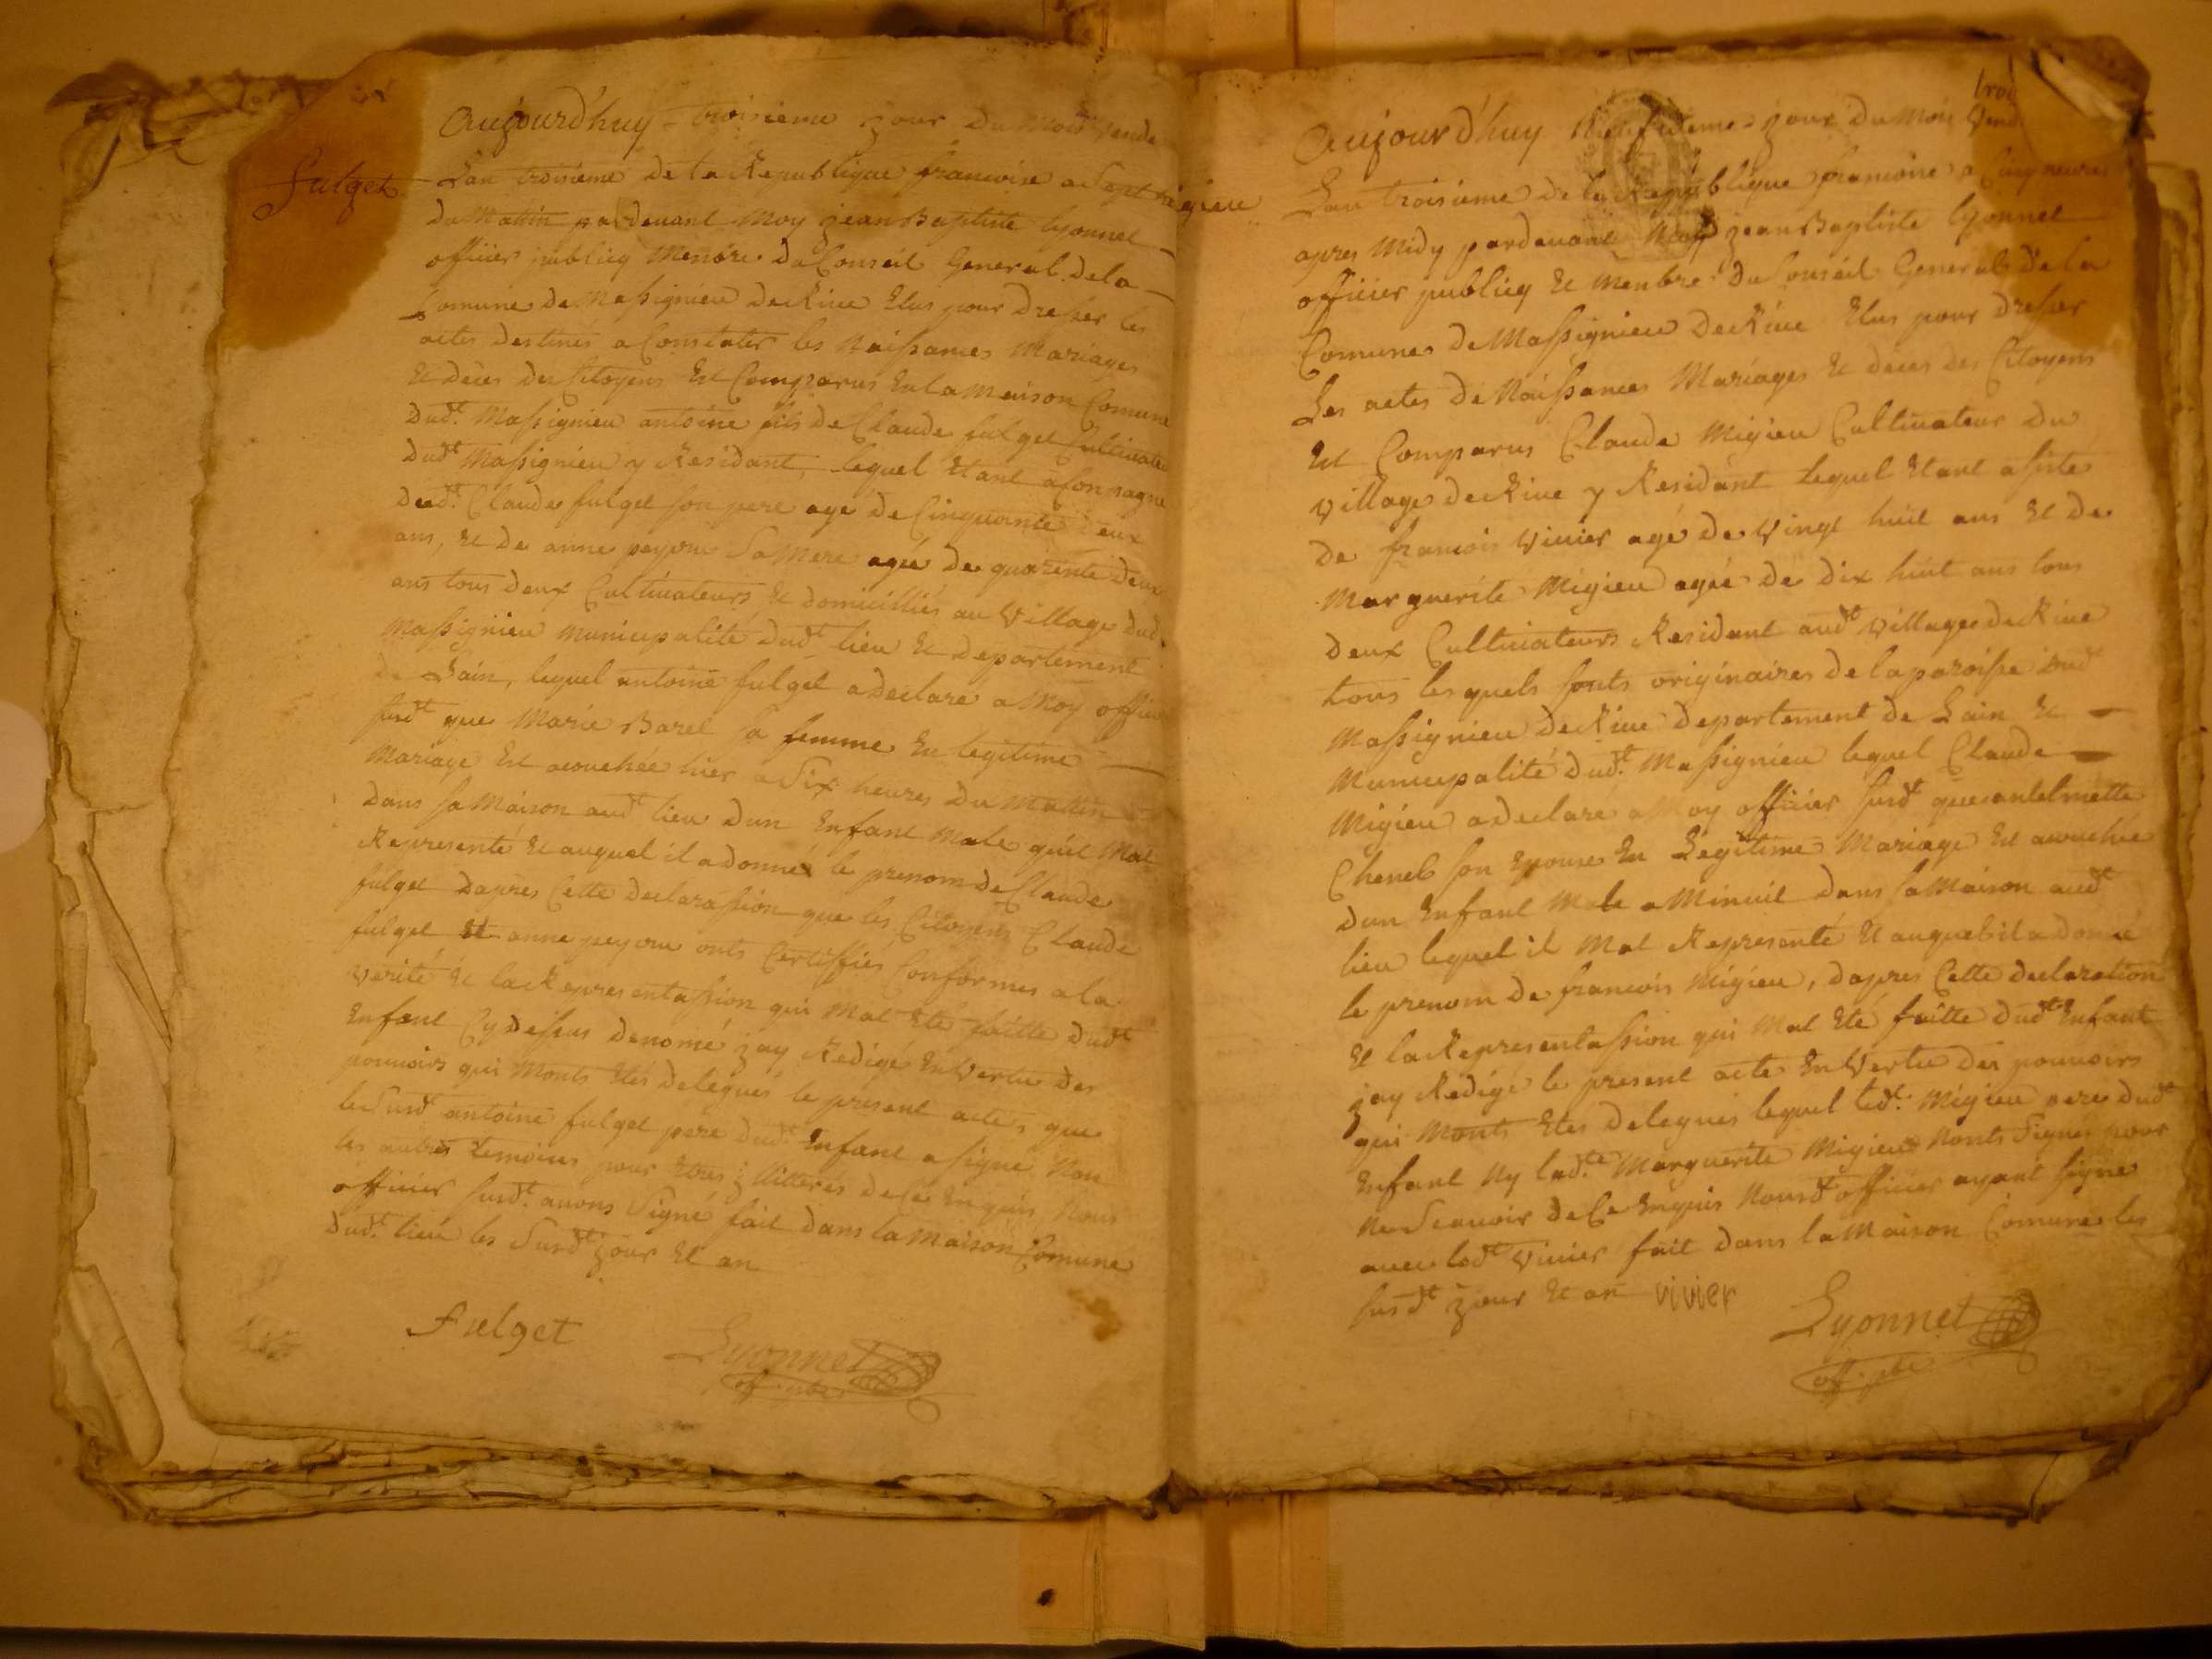 Aujourd'huy troisieme jour du Mois Vende
fulget
Lan troisieme de la Republique francoise a Sept
du Mattin pardevant Moy jean Baptiste lyonnet
officier publicq Menbre du Conseil General de la
Comune de Massignieu de Rive Elus pour dresser les
actes destinés a Constater les Naissances Mariages
Et déces des Citoyens Est Comparus En la Maison Comune
dudt. Massignieu antoine fils de Claude fulget Cultivateu
dudt Massignieu y Residant, lequel Etant aConpagne
dudt. Claude fulget son pere age de Cinquante deux
ans, Et de anne peyson Sa Mere agée de quarente deux
ans tous deux Cultivateurs Et domicilliés au Village dudt
Massignieu Municipalité dudt lieu Et departement
de Lain, lequel antoine fulget a declare a Moy officier
susdt que Marie Barel Sa femme En legitime
Mariage Est acouchée hier a Six heures du Mattin
dans sa Maison audt lieu dun Enfant Male quil Mat
Representé Et auquel il a donnéx le prenom de Claude
fulget dapres Cette declarassion que les Citoyens Claude
fulget Et anne peyson onts Certiffiés Conformes a la
verité Et la Representassion qui Mat Eté faitte dudt
Enfant Cydessus denomé jay Redigé En Vertu des
pouvoirs qui Monts Etés delegués le present actes que
le Susdt antoine fulget pere dudt. Enfant a signe Non
les autres temoins pour Etres illitteres de Ce Enquis Nous
officier susdt. avons Signé fait dans la Maison Comune
dudt. lieu les Susdt jour Et an
Fulget
Lyonnet
off. pble
Aujourd'huy jour du Mois Vend
Lan troisieme de la Republique francoise a Cinq heures
apres Midy pardevant Moy jean Baptiste lyonnet
officier publicq Et Menbre du Conseil General de la
Comunes de Massignieu de Rive Elus pour dresser
Les actes de Naissances Mariages Et déces des Citoyens
Est Comparus Claude Migieu Cultivateur du
Village de Rive y Residant Lequel Etant assiste
de francois Vivier agé de Vingt huit ans Et de
Marguerite Migieu agée de dix huit ans tous
deux Cultivateurs Residant audt Village de Rive
tous les quels sonts originaires de la paroisse dudt
Massignieu de Rive departement de Lain Et
Municipalité dudt. Massignieu lequel Claude
Migieu a declaré a Moy officier susdt que antelmette
Chenel son Epouse En Legitime Mariage Est acouchée
dun Enfant Male a Minuit dans sa Maison audt
lieu lequel il Mat Representé Et auquel il a donné
le prenom de francois Migieu, dapres Cette declaration
Et la Representassion qui Mat Eté faitte dudt Enfant
jay Redigé le present acte En Vertu des pouvoirs
qui Monts Etés delegués lequel ledt. Migieu pere dudt
Enfant Ny ladte. Marguerite Migieu Nonts Signés pour
Ne Scavoir de Ce Enquis Nousdt officier ayant signe
avec ledt Vivier fait dans la Maison Comune les
susdt jour Et an vivier
Lyonnet
off. pble